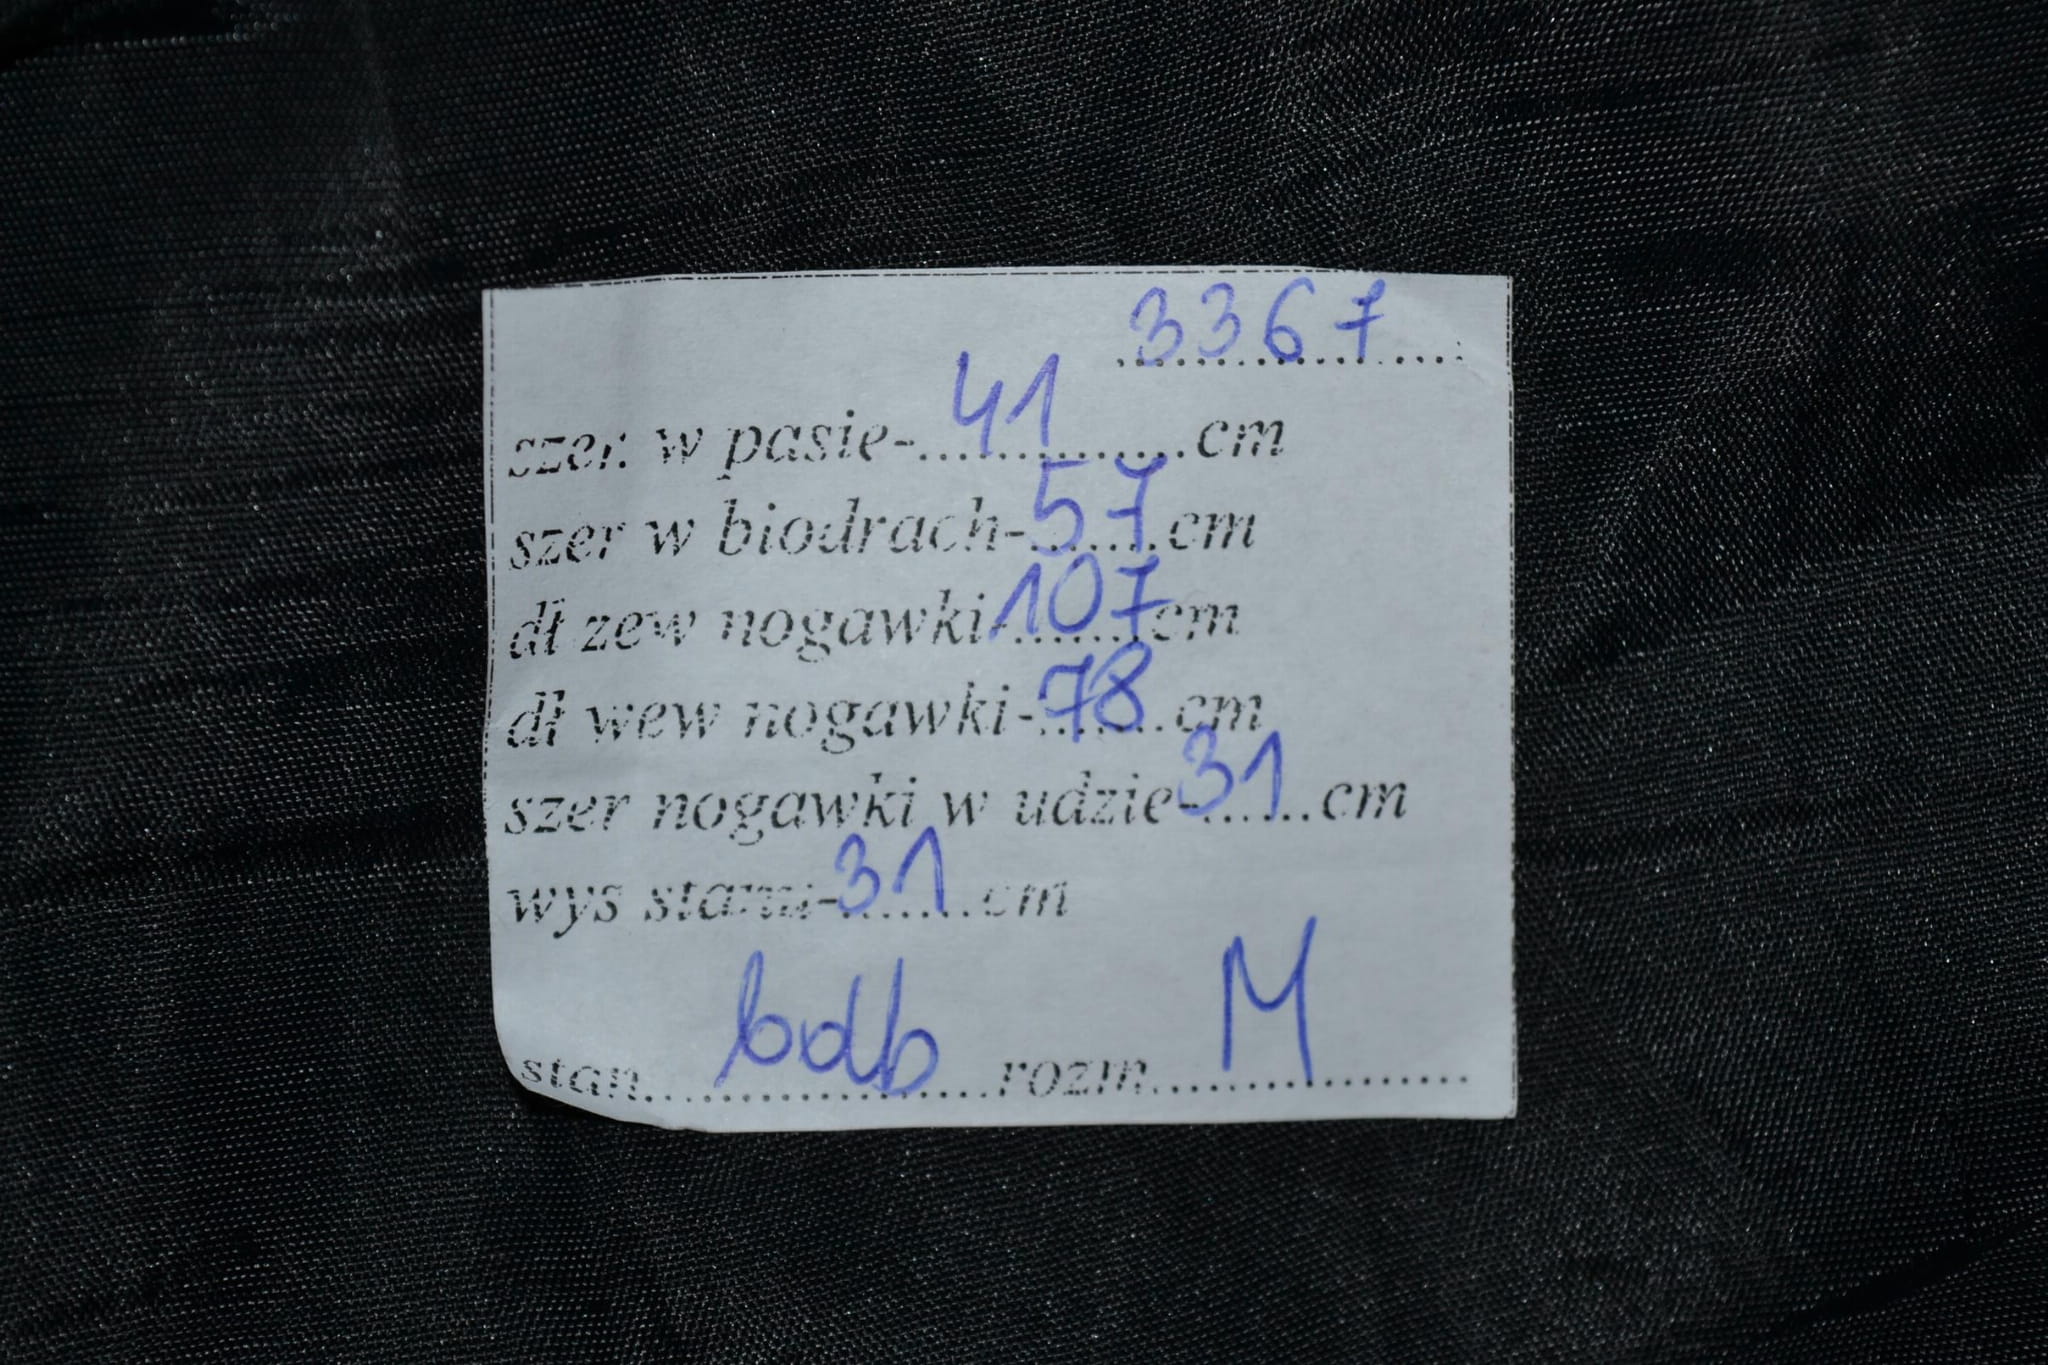 3367
szer. w pasie-41cm
szer w biodrach-57cm
dł zew nogawki-107cm
dł wew nogawki-78cm
szer nogawki w udzie-31cm
wys stanu-31cm
stan bdb rozm. M